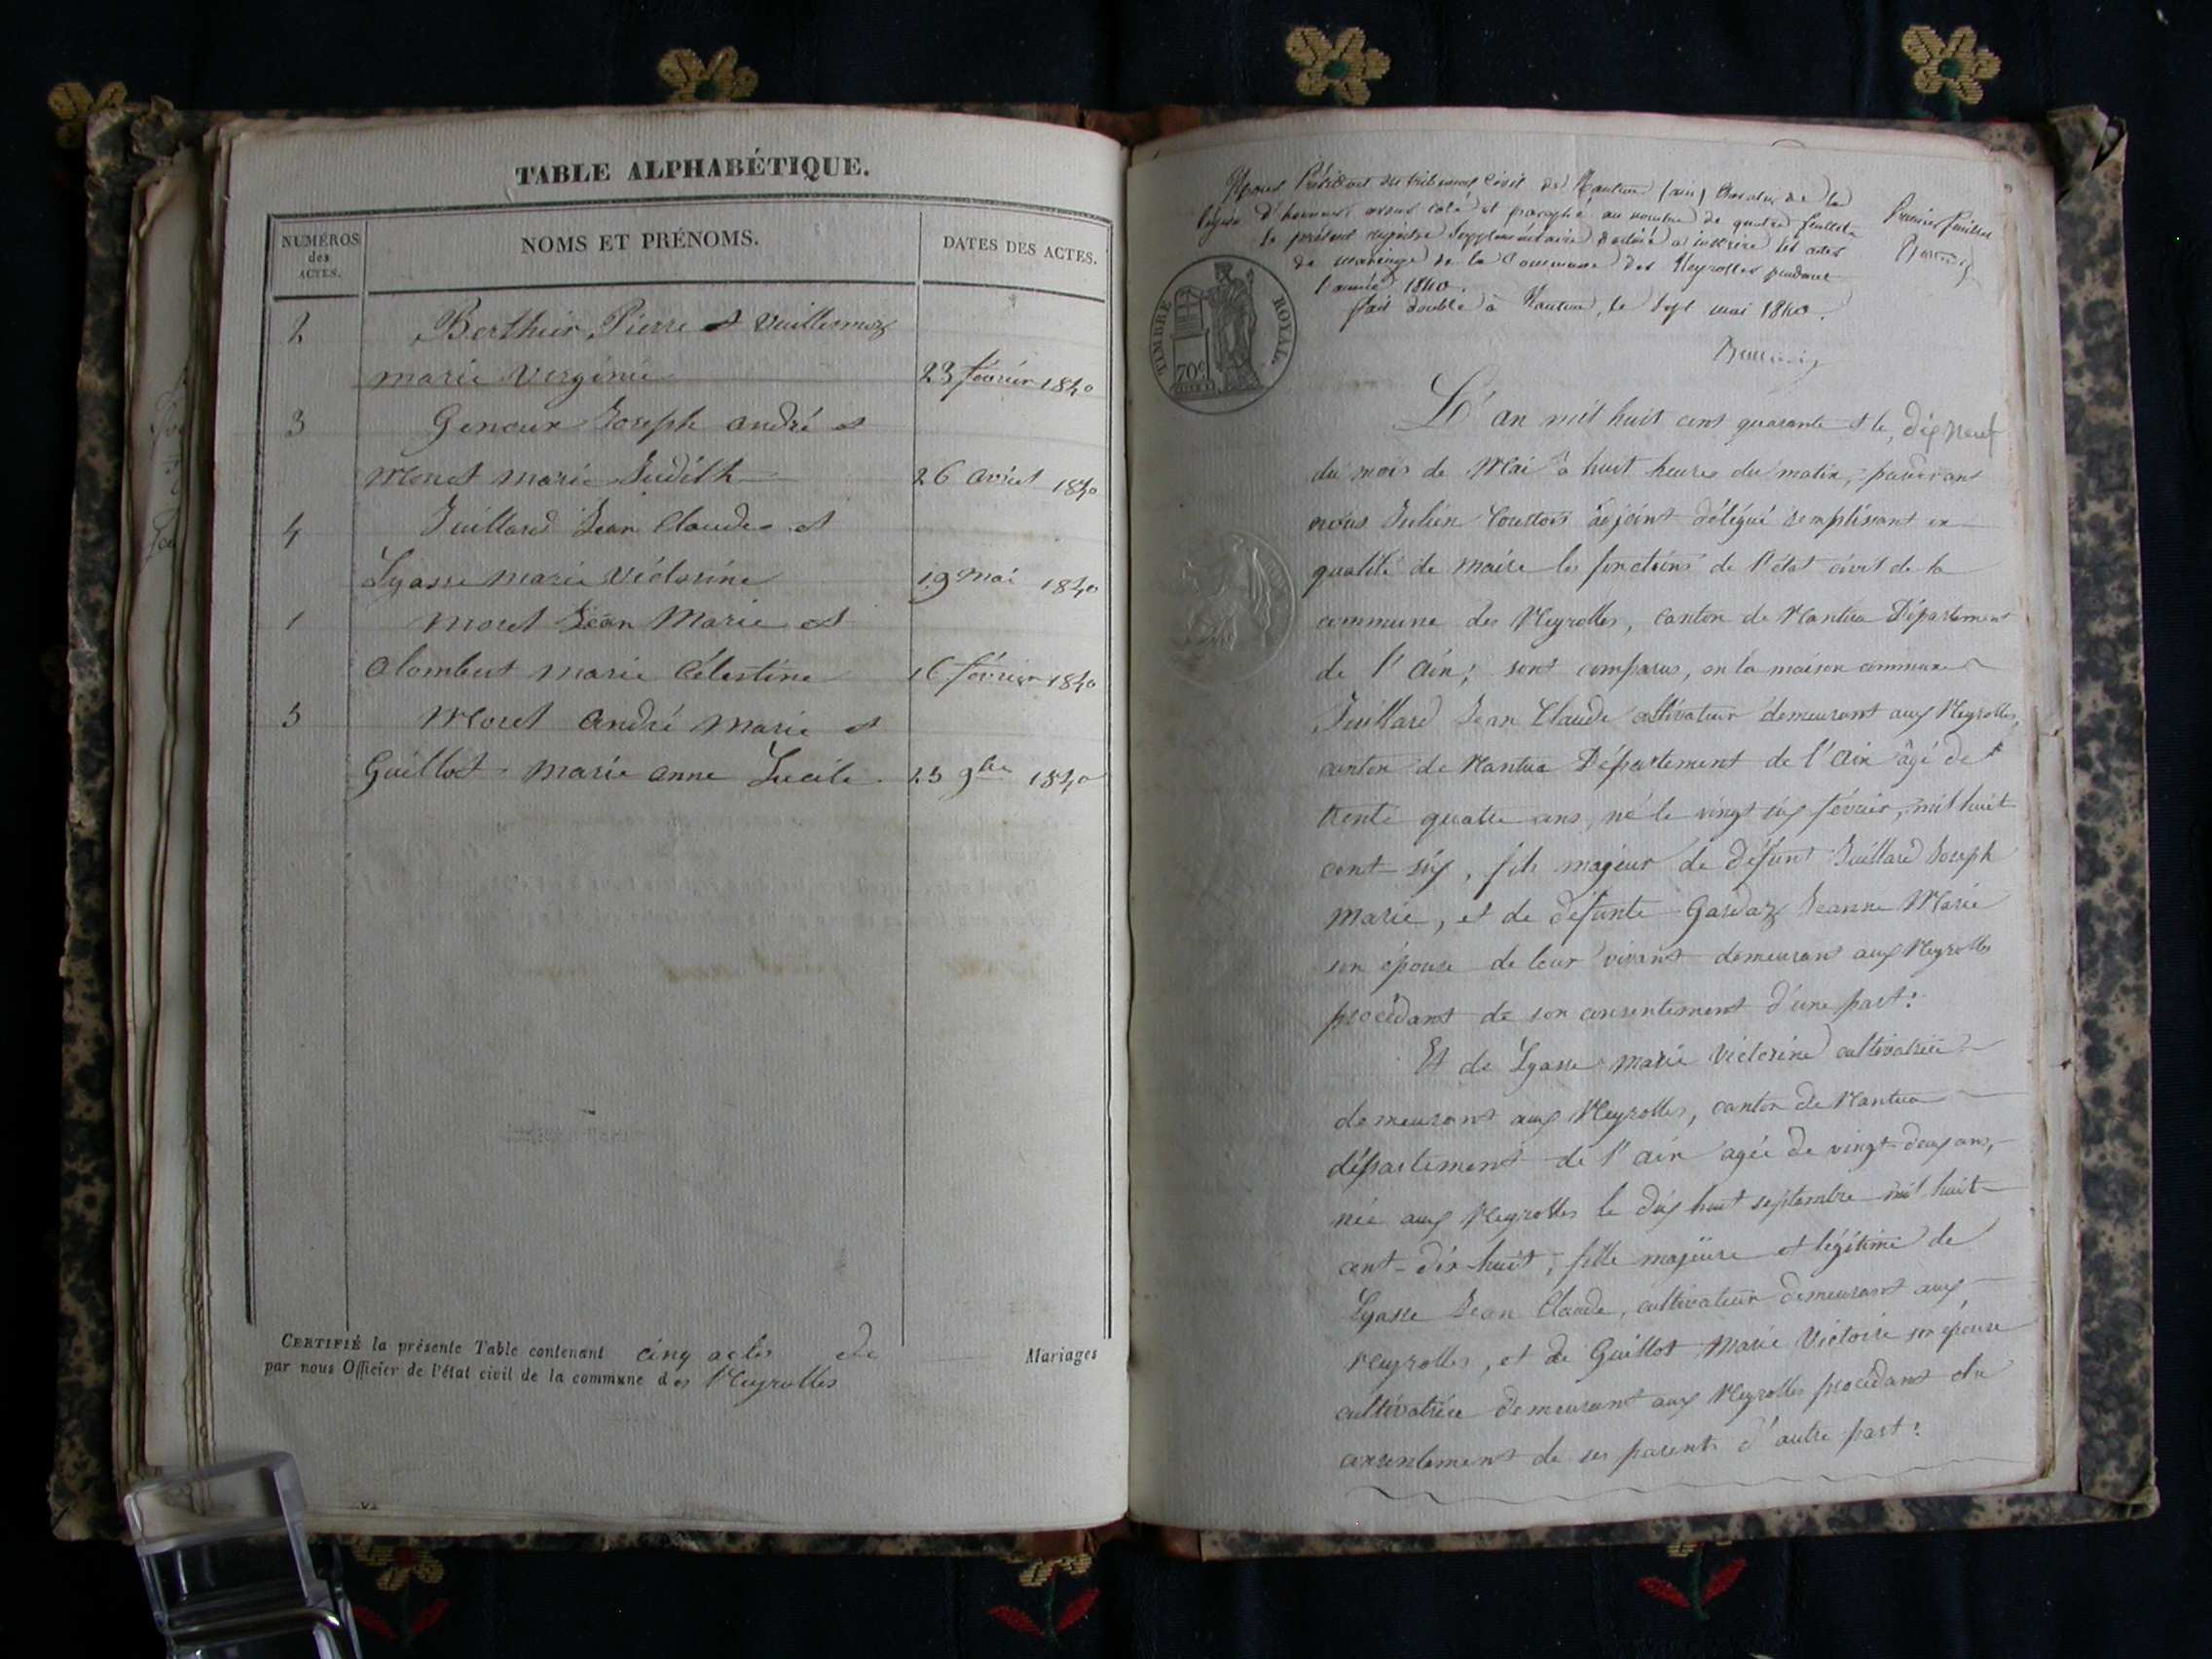 TABLE ALPHABÉTIQUE.
NUMÉROS des ACTES.
NOMS ET PRÉNOMS.
DATES DES ACTES.
2 Berthier Pierre et Vuillermoz
marie Virginie 23 février 1840
3 Genoux Joseph andré et
Monet marie Judith 26 avril 1840
4 Juillard Jean Claude et
Lyasse marie Victorine 19 mai 1840
1 Moret Jean Marie et
alombert marie Célestine 16 février 1840
5 Moret andré marie et
Guillot marie anne Lucile 25 9bre 1840
CERTIFIÉ la présente Table contenant cinq actes de Mariages
par nous Officier de l'état civil de la commune des Neyrolles
Nous Président du tribunal Civil de Nantua (ain) Chevalier de la
légion d'honneur avons coté et paraphé au nombre de quatre feuillets
le présent registre Supplémentaire destiné à inscrire les actes
de mariage de la Commune des Neyrolles pendant
l'année 1840.
fait double à Nantua, le sept mai 1840.
Premier feuillet
TIMBRE ROYAL
70c
L'an mil huit cent quarante et le, dix neuf
du mois de Mai à huit heures du matin, pardevant
nous Julien Courtois adjoint délégué remplissant en
qualité de maire les fonctions de l'état civil de la
commune des Neyrolles, canton de Nantua Département
de l'Ain; sont comparus, en la maison commune
Juillard Jean Claude cultivateur demeurant aux Neyrolles,
canton de Nantua Département de l'Ain âgé de
trente quatre ans, né le vingt six février, mil huit
cent six, fils majeur de défunt Juillard Joseph
Marie, et de défunte Gardaz Jeanne Marie
son épouse de leur vivant demeurant aux Neyrolles
procédant de son consentement d'une part:
Et de Lyasse Marie Victorine cultivatrice
demeurant aux Neyrolles, canton de Nantua
département de l'ain agée de vingt-deux ans,
née aux Neyrolles le dix huit septembre mil huit
cent-dix-huit, fille majeure et légitime de
Lyasse Jean Claude, cultivateur demeurant aux
Neyrolles, et de Guillot Marie Victoire son épouse
cultivatrice demeurant aux Neyrolles procédant du
consentement de ses parents d'autre part: